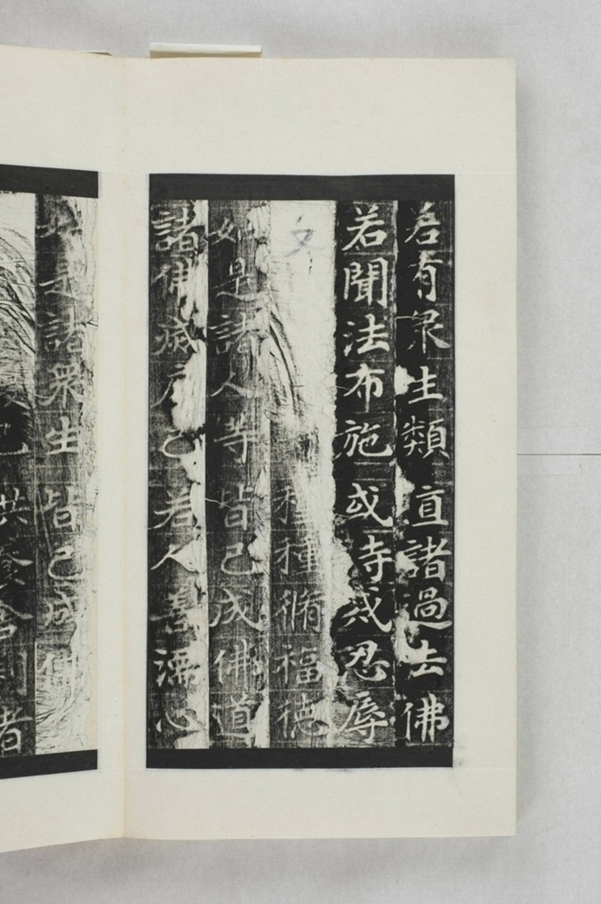 若有衆生類直諸過去佛
若聞法布施或寺戒忍辱
種種脩福德
如是諸人等皆已成佛道
諸佛滅度已若人善濡心
如是諸衆生皆已成佛
已供養舍利者